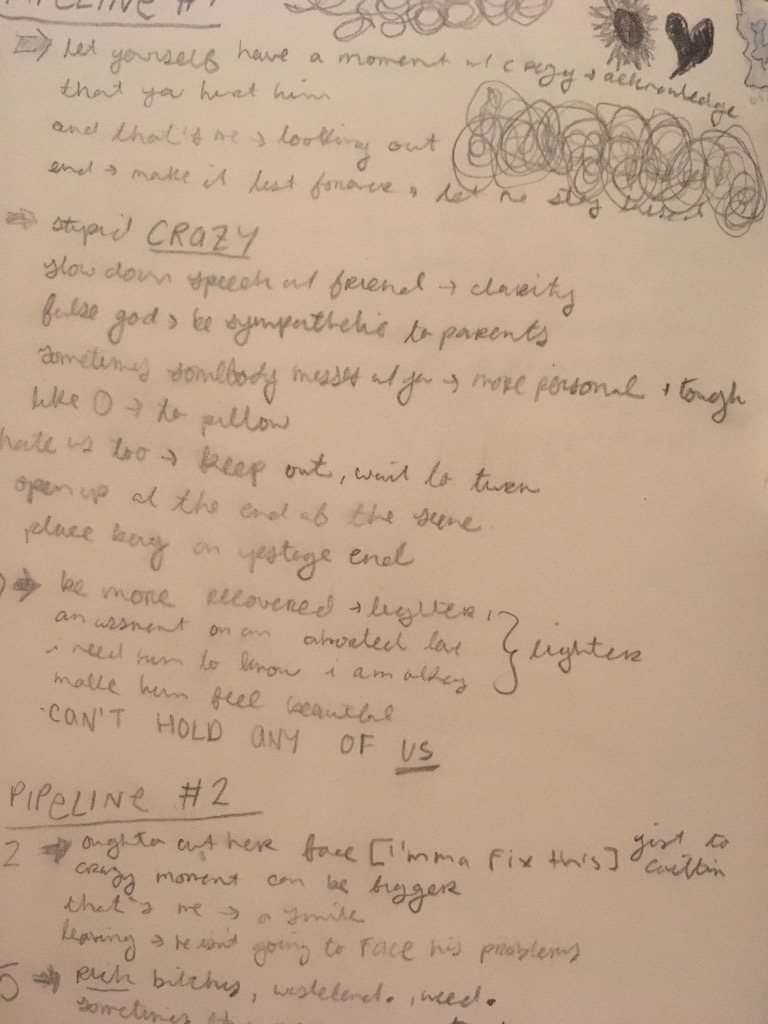 PIPELINE #1
⇒ let yourself have a moment w/ crazy + acknowledge
that ya hurt him
and that's me → looking out
end → make it last forever, let me stay
⇒ stupid CRAZY
slow down speech w/ friend → clarity
false god → be sympathetic to parents
sometimes somebody messes w/ ya → more personal + tough
like O → to pillow
hate us too → keep out, wait to turn
open up at the end of the scene
place on upstage end
⇒ be more recovered → lighter,
an on an love
i need him to know i am okay
make him feel beautiful
} lighter
·CAN'T HOLD ANY OF US
PIPELINE #2
2 ⇒ oughta cut her face [I'mma Fix this] just to Caitlin
crazy moment can be bigger
that's me → a smile
leaving → he isn't going to Face his problems
5 ⇒ Rich bitches, wasteland., weed.
sometimes